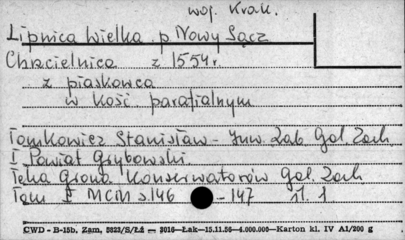 woj. Krak.
Lipnica Wielka p. Nowy Sącz
Chrzcielnica z 1554 r.
z piaskowca
w kość. parafialnym
Tomkowicz Stanisław - Inw. Zab. Gal. Zach
I Powiat Grybowski
Teka Grona Konserwatorów Gal. Zach
Tom I MCM s. 146 - 147 il. 1
CWD - B-15b, Zam. 3823/S/Łź — 3016—Łak—15.11.56—4.000.000—Karton kl. IV A1/200 g